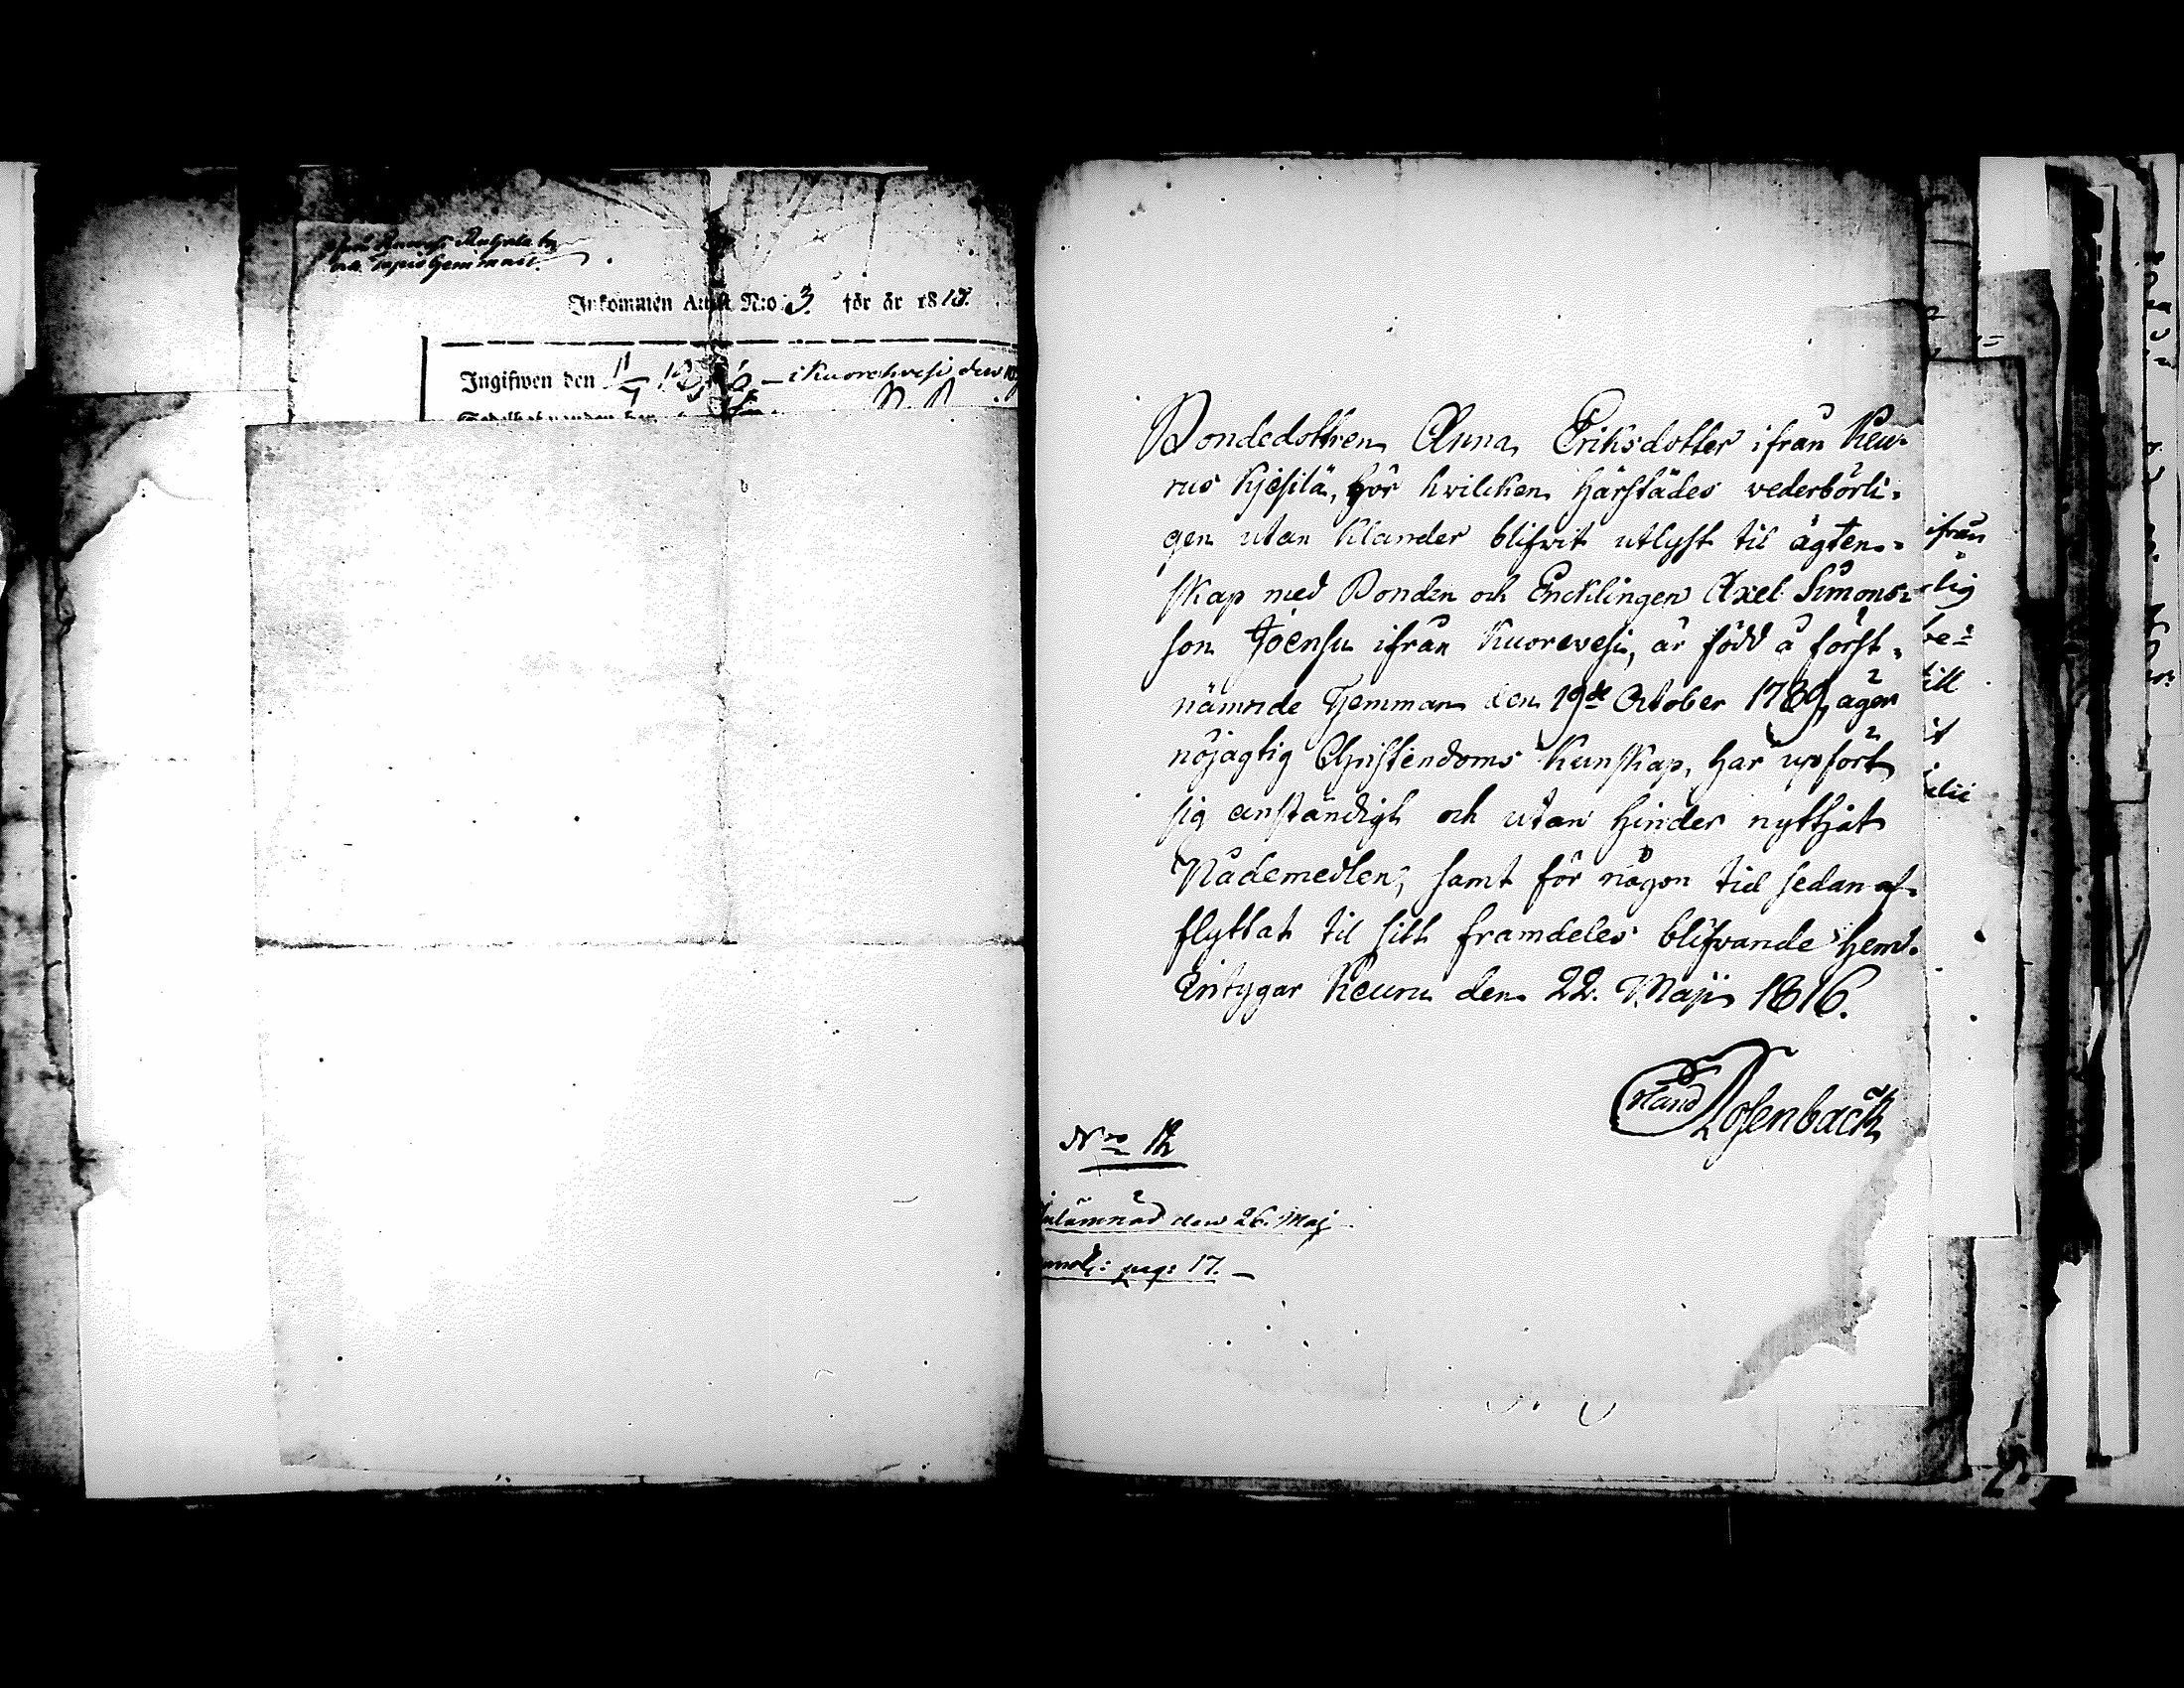 Inkommen Attest N:o 3 för år 1815.
Ingifwen den
Bondedottren Anna Eriksdotter ifrån Keu-
rus Kjesilä, för hvilcken härstädes vederbörli-
gen utan klander blifvit utlyst til ägten-
skap med Bonden och Encklingen Axel Simons-
son Joensu ifrån Kuorevesi, är född å först-
nämnde Hemman den 19de October 1789, äger
nöjagtig Christendoms Kunskap, har uppfört
sig anständigt och utan hinder nyttjat
Nådemedlen, samt för någon tid sedan af-
flyttat til sitt framdeles blifvande hem.
Intygar Keuru den 22. Maji 1816.
Erland Rosenback
Nro 12
Inlämnad den 26. Maj
pag: 17.
ifrån
lig
be-
till